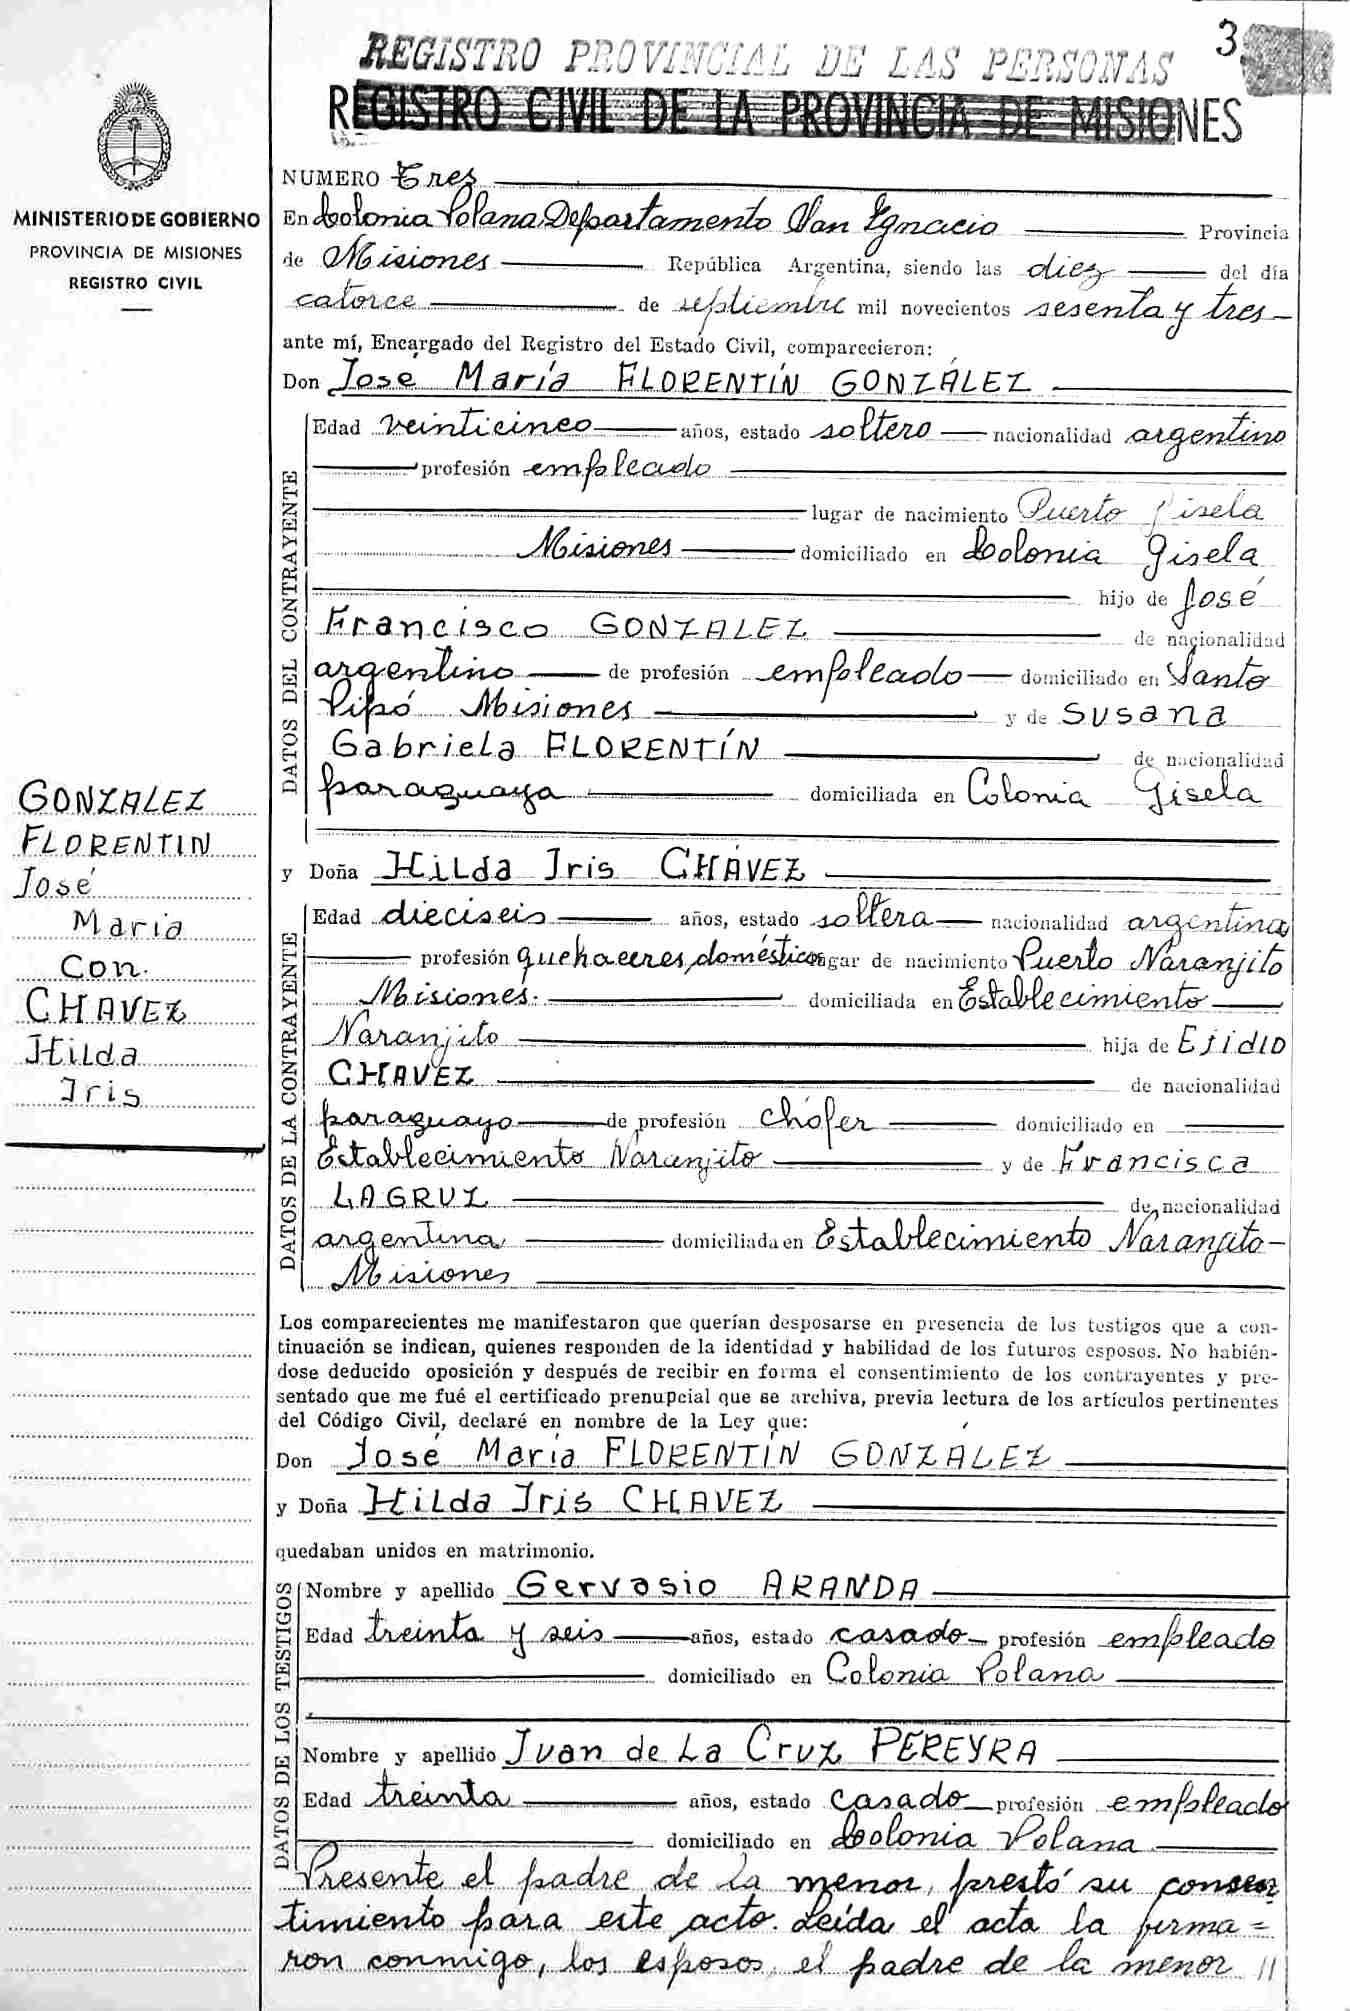 3
REGISTRO PROVINCIAL DE LAS PERSONAS
REGISTRO CIVIL DE LA PROVINCIA DE MISIONES
MINISTERIO DE GOBIERNO
PROVINCIA DE MISIONES
REGISTRO CIVIL
GONZALEZ
FLORENTIN
José
Maria
Con.
CHAVEZ
Hilda
Iris
NUMERO Tres
En Colonia Polana Departamento San Ignacio Provincia
de Misiones República Argentina, siendo las diez del día
catorce de septiembre mil novecientos sesenta y tres
ante mí, Encargado del Registro del Estado Civil, comparecieron:
Don José María FLORENTÍN GONZÁLEZ
DATOS DEL CONTRAYENTE
Edad veinticinco años, estado soltero nacionalidad argentino
profesión empleado
lugar de nacimiento Puerto Gisela
Misiones domiciliado en Colonia Gisela
hijo de José
Francisco GONZALEZ de nacionalidad
argentino de profesión empleado domiciliado en Santo
Pipó Misiones y de Susana
Gabriela FLORENTÍN de nacionalidad
paraguaya domiciliada en Colonia Gisela
y Doña Hilda Iris CHÁVEZ
DATOS DE LA CONTRAYENTE
Edad dieciseis años, estado soltera nacionalidad argentina
profesión quehaceres domésticos lugar de nacimiento Puerto Naranjito
Misiones. domiciliada en Establecimiento
Naranjito hija de Ejidio
CHAVEZ de nacionalidad
paraguayo de profesión chófer domiciliado en
Establecimiento Naranjito y de Francisca
LAGRUZ de nacionalidad
argentina domiciliada en Establecimiento Naranjito
Misiones
Los comparecientes me manifestaron que querían desposarse en presencia de los testigos que a con-
tinuación se indican, quienes responden de la identidad y habilidad de los futuros esposos. No habién-
dose deducido oposición y después de recibir en forma el consentimiento de los contrayentes y pre-
sentado que me fué el certificado prenupcial que se archiva, previa lectura de los artículos pertinentes
del Código Civil, declaré en nombre de la Ley que:
Don José María FLORENTÍN GONZÁLEZ
y Doña Hilda Iris CHAVEZ
quedaban unidos en matrimonio.
DATOS DE LOS TESTIGOS
Nombre y apellido Gervasio ARANDA
Edad treinta y seis años, estado casado profesión empleado
domiciliado en Colonia Polana
Nombre y apellido Juan de La Cruz PEREYRA
Edad treinta años, estado casado profesión empleado
domiciliado en Colonia Polana
Presente el padre de la menor, prestó su consen
timiento para este acto. Leída el acta la firma=
ron conmigo, los esposos, el padre de la menor //